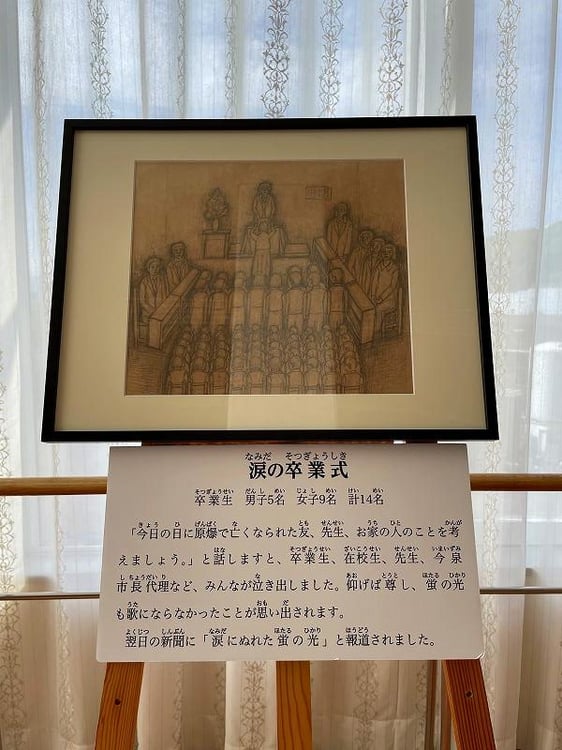 涙の卒業式
卒業生 男子5名 女子9名 計14名
「今日の日に原爆で亡くなられた友、先生、お家の人のことを考
えましょう。」と話しますと、卒業生、在校生、先生、今泉
市長代理など、みんなが泣き出しました。仰げば尊し、蛍の光
も歌にならなかったことが思い出されます。
翌日の新聞に「涙にぬれた蛍の光」と報道されました。